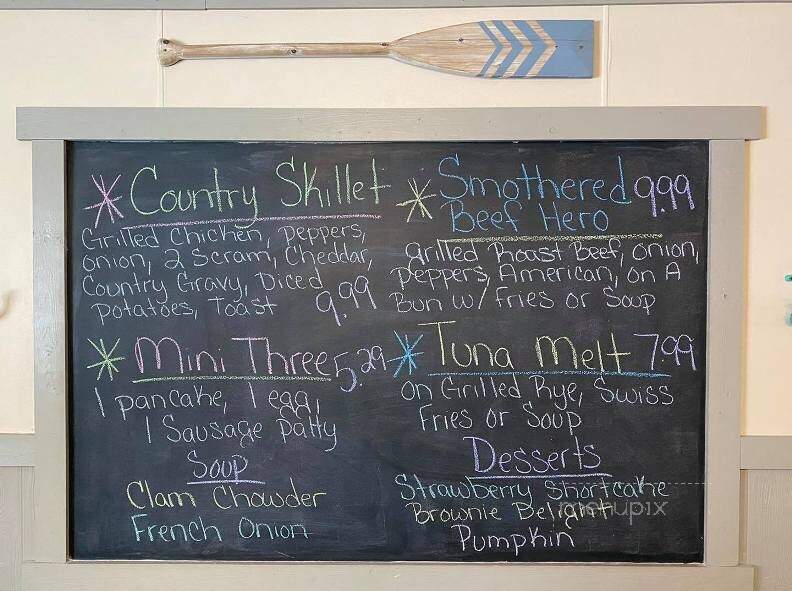 Country Skillet
Grilled Chicken, peppers,
onion, 2 Scram, Cheddar,
Country Gravy, Diced
potatoes, Toast 9.99
Smothered 9.99
Beef Hero
grilled Roast Beef, onion,
peppers, American, on A
Bun w/ Fries or Soup
Mini Three 5.29
1 pancake, 1 egg,
1 Sausage patty
Tuna Melt 7.99
on Grilled Rye, Swiss
Fries or Soup
Soup
Clam Chowder
French Onion
Desserts
Strawberry Shortcake
Brownie Delight
Pumpkin
menupix